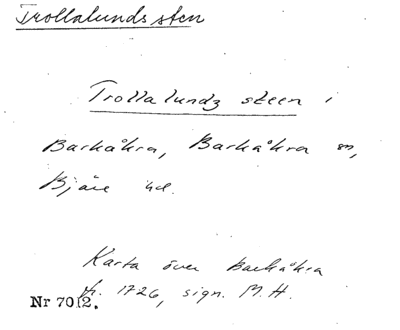 Trollalunds sten
Trollalundz steen i
Barkåkra, Barkåkra sn,
Bjäre hd.
Karta över Barkåkra
fr. 1726, sign. M.H.
Nr 7012.